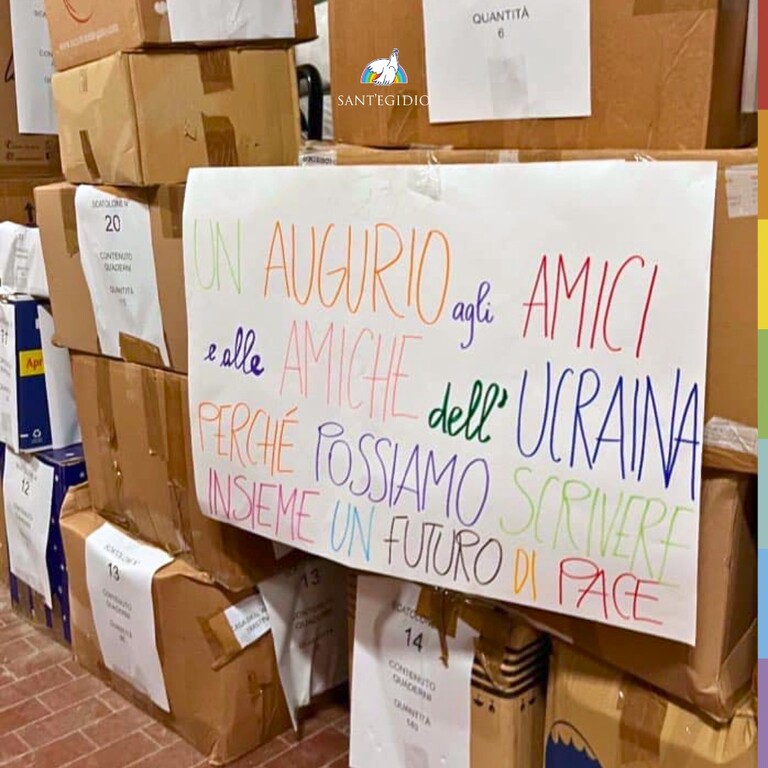 QUANTITÀ
6
SANT'EGIDIO
SCATOLONE N°
20
CONTENUTO
QUADERNI
QUANTITÀ
UN AUGURIO agli AMICI
e alle AMICHE dell' UCRAINA
PERCHÉ POSSIAMO SCRIVERE
INSIEME UN FUTURO DI PACE
11
Apr
12
SCATOLONE N°
13
CONTENUTO
QUADERNI
QUANTITÀ
13
CONTENUTO
QUADERNI
14
CONTENUTO
QUADERNI
QUANTITÀ
140